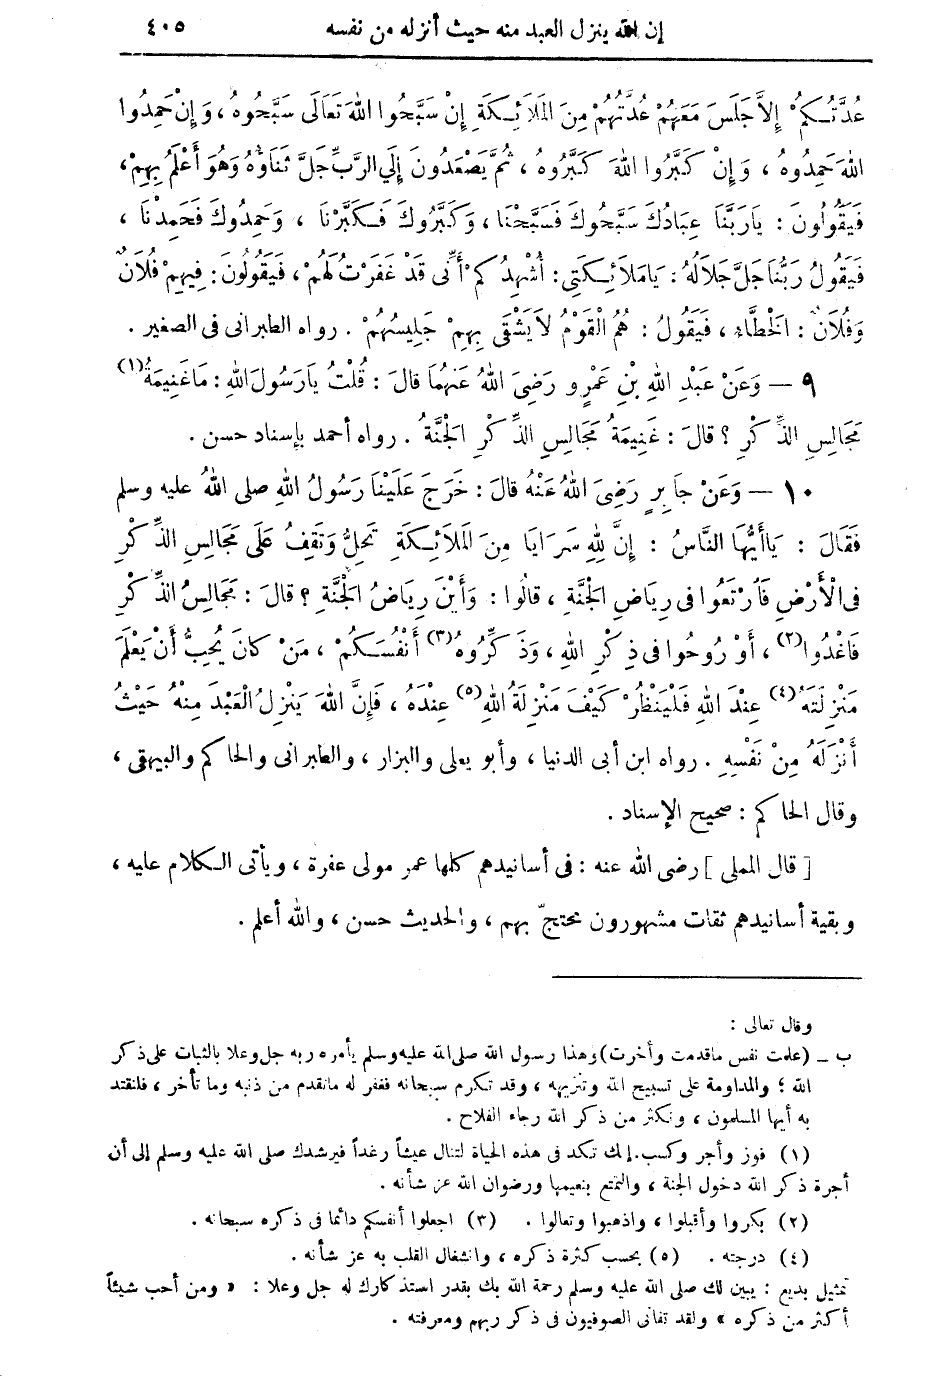 إن الله ينزل العبد منه حيث أنزله من نفسه ٤٠٥
عُدَّتُكُمْ إِلاَّ جَلَسَ مَعَهُمْ عُدَّتُهُمْ مِنَ المَلَائِكَةِ إِنْ سَبَّحُوا اللهَ تَعَالَى سَبَّحُوهُ ، وَإِنْ حَمِدُوا
اللهَ حَمِدُوهُ ، وَإِنْ كَبَّرُوا اللهَ كَبَّرُوهُ ، ثُمَّ يَصْعَدُونَ إِلَى الرَّبِّ جَلَّ ثَنَاؤُهُ وَهُوَ أَعْلَمُ بِهِمْ ،
فَيَقُولُونَ : يَا رَبَّنَا عِبَادُكَ سَبَّحُوكَ فَسَبَّحْنَا ، وَكَبَّرُوكَ فَكَبَّرْنَا ، وَحَمِدُوكَ فَحَمِدْنَا ،
فَيَقُولُ رَبُّنَا جَلَّ جَلاَلُهُ : يَا مَلاَئِكَتِى : أُشْهِدُكُمْ أَنِّى قَدْ غَفَرْتُ لَهُمْ ، فَيَقُولُونَ : فِيهِمْ فُلاَنٌ
وَفُلاَنٌ : الخَطَّاءُ ، فَيَقُولُ : هُمُ الْقَوْمُ لاَ يَشْقَى بِهِمْ جَلِيسُهُمْ . رواه الطبرانى فى الصغير .
٩ — وَعَنْ عَبْدِ اللهِ بْنِ عَمْرٍو رَضِىَ اللهُ عَنْهُمَا قالَ : قُلْتُ يَا رَسُولَ اللهِ : مَا غَنِيمَةُ(١)
مَجَالِسِ الذِّكْرِ ؟ قالَ : غَنِيمَةُ مَجَالِسِ الذِّكْرِ الجَنَّةُ . رواه أحمد بإسناد حسن .
١٠ — وَعَنْ جَابِرٍ رَضِىَ اللهُ عَنْهُ قالَ : خَرَجَ عَلَيْنَا رَسُولُ اللهِ صلى اللهُ عليه وسلم
فَقَالَ : يَاأَيُّهَا النَّاسُ : إِنَّ لِلهِ سَرَايَا مِنَ المَلَائِكَةِ تَحِلُّ وَتَقِفُ عَلَى مَجَالِسِ الذِّكْرِ
فى الْأَرْضِ فَارْتَعُوا فى رِيَاضِ الجَنَّةِ ، قَالُوا : وَأَيْنَ رِيَاضُ الجَنَّةِ ؟ قالَ : مَجَالِسُ الذِّكْرِ
فَاغْدُوا(٢) ، أَوْ رُوحُوا فى ذِكْرِ اللهِ ، وَذَكِّرُوهُ(٣) أَنْفُسَكُمْ ، مَنْ كَانَ يُحِبُّ أَنْ يَعْلَمَ
مَنْزِلَتَهُ(٤) عِنْدَ اللهِ فَلْيَنْظُرْ كَيْفَ مَنْزِلَةُ اللهِ(٥) عِنْدَهُ ، فَإِنَّ اللهَ يَنْزِلُ الْعَبْدَ مِنْهُ حَيْثُ
أَنْزَلَهُ مِنْ نَفْسِهِ . رواه ابن أبى الدنيا ، وأبو يعلى والبزار ، والطبرانى والحاكم والبيهقى ،
وقال الحاكم : صحيح الإسناد .
[ قال المملى ] رضى الله عنه : فى أسانيدهم كلها عمر مولى عفرة ، ويأتى الكلام عليه ،
وبقية أسانيدهم ثقات مشهورون محتجّ بهم ، والحديث حسن ، والله أعلم .
وقال تعالى :
ب ــ (علمت نفس ماقدمت وأخرت) وهذا رسول الله صلى الله عليه وسلم يأمره ربه جل وعلا بالثبات على ذكر
الله ؛ والمداومة على تسبيح الله وتنزيهه ، وقد تكرم سبحانه فغفر له ماتقدم من ذنبه وما تأخر ، فلنقتد
به أيها المسلمون ، ونكثر من ذكر الله رجاء الفلاح .
(١) فوز وأجر وكسب. إنك تكد فى هذه الحياة لتنال عيشاً رغداً فيرشدك صلى الله عليه وسلم إلى أن
أجرة ذكر الله دخول الجنة ، والتمتع بنعيمها ورضوان الله عز شأنه .
(٢) بكروا وأقبلوا ، واذهبوا وتعالوا . (٣) اجعلوا أنفسكم دائما فى ذكره سبحانه .
(٤) درجته . (٥) بحسب كثرة ذكره ، وانشغال القلب به عز شأنه .
تمثيل بديع : يبين لك صلى الله عليه وسلم رحمة الله بك بقدر استذكارك له جل وعلا : « ومن أحب شيئاً
أكثر من ذكره » ولقد تفانى الصوفيون فى ذكر ربهم ومعرفته .